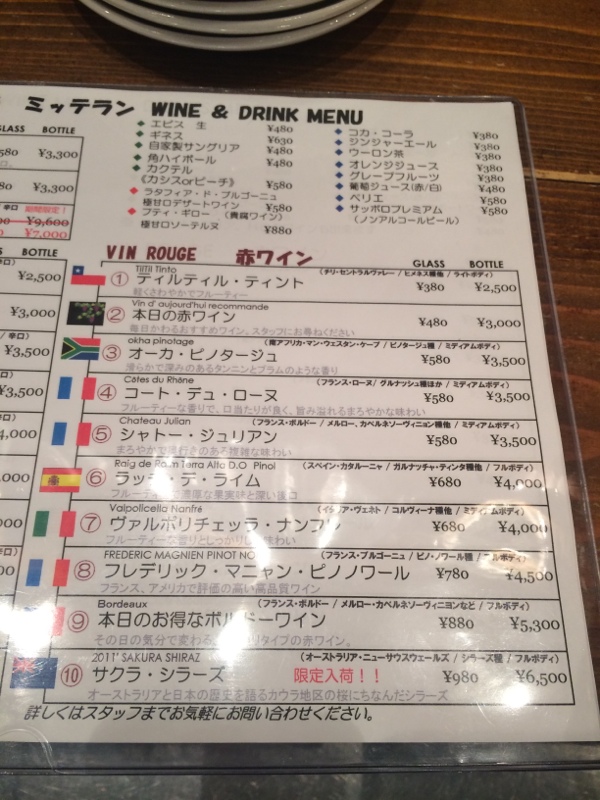 ミッテラン WINE & DRINK MENU
GLASS BOTTLE
580 ¥3,300
¥3,300
期間限定!
¥9,600
¥7,000
BOTTLE
¥2,500
¥3,000
¥3,500
¥3,500
¥3,500
エビス 生 ¥480
ギネス ¥630
自家製サングリア ¥480
角ハイボール ¥480
カクテル
《カシスorピーチ》 ¥580
ラタフィア・ド・ブルゴーニュ
極甘口デザートワイン ¥580
プティ・ギロー (貴腐ワイン)
極甘口ソーテルヌ ¥880
コカ・コーラ ¥380
ジンジャーエール ¥380
ウーロン茶 ¥380
オレンジジュース ¥380
グレープフルーツ ¥380
葡萄ジュース(赤/白) ¥480
ペリエ ¥580
サッポロプレミアム ¥580
(ノンアルコールビール)
VIN ROUGE 赤ワイン GLASS BOTTLE
TilTil Tinto (チリ・セントラルヴァレー / ヒメネス種他 / ライトボディ)
① ティルティル・ティント ¥380 ¥2,500
軽くさわやかでフルーティー
Vin d' aujourd'hui recommande
② 本日の赤ワイン ¥480 ¥3,000
毎日かわるおすすめワイン。スタッフにお尋ねください
okha pinotage (南アフリカ・マン・ウェスタン・ケープ / ピノタージュ種 / ミディアムボディ)
③ オーカ・ピノタージュ ¥580 ¥3,500
滑らかで深みのあるタンニンとプラムのような香り
Côtes du Rhône (フランス・ローヌ / グルナッシュ種ほか / ミディアムボディ)
④ コート・デュ・ローヌ ¥580 ¥3,500
フルーティーな香りで、口当たりが良く、旨み溢れるまろやかな味わい
Chateau Julian (フランス・ボルドー / メルロー、カベルネソーヴィニョン種他 / ミディアムボディ)
⑤ シャトー・ジュリアン ¥580 ¥3,500
まろやかで奥行きのある複雑な味わい
Raig de Raim Terra Alta D.O Pinol (スペイン・カタルーニャ / ガルナッチャ・ティンタ種他 / フルボディ)
⑥ ラッチ・デ・ライム ¥680 ¥4,000
フルーティーで濃厚な果実味と深いコク
Valpolicella Nanfré (イタリア・ヴェネト / コルヴィーナ種他 / ミディアムボディ)
⑦ ヴァルポリチェッラ・ナンフレ ¥680 ¥4,000
フルーティーな香りとしっかりした味わい
FREDERIC MAGNIEN PINOT NO (フランス・ブルゴーニュ / ピノ・ノワール種 / フルボディ)
⑧ フレデリック・マニャン・ピノノワール ¥780 ¥4,500
フランス、アメリカで評価の高い高品質ワイン
Bordeaux (フランス・ボルドー / メルロー・カベルネソーヴィニヨンなど / フルボディ)
⑨ 本日のお得なボルドーワイン ¥880 ¥5,300
その日の気分で変わる タイプの赤ワイン。
2011' SAKURA SHIRAZ (オーストラリア・ニューサウスウェールズ / シラーズ種 / フルボディ)
⑩ サクラ・シラーズ 限定入荷!! ¥980 ¥6,500
オーストラリアと日本の歴史を語るカウラ地区の桜にちなんだシラーズ
詳しくはスタッフまでお気軽にお問い合わせください。